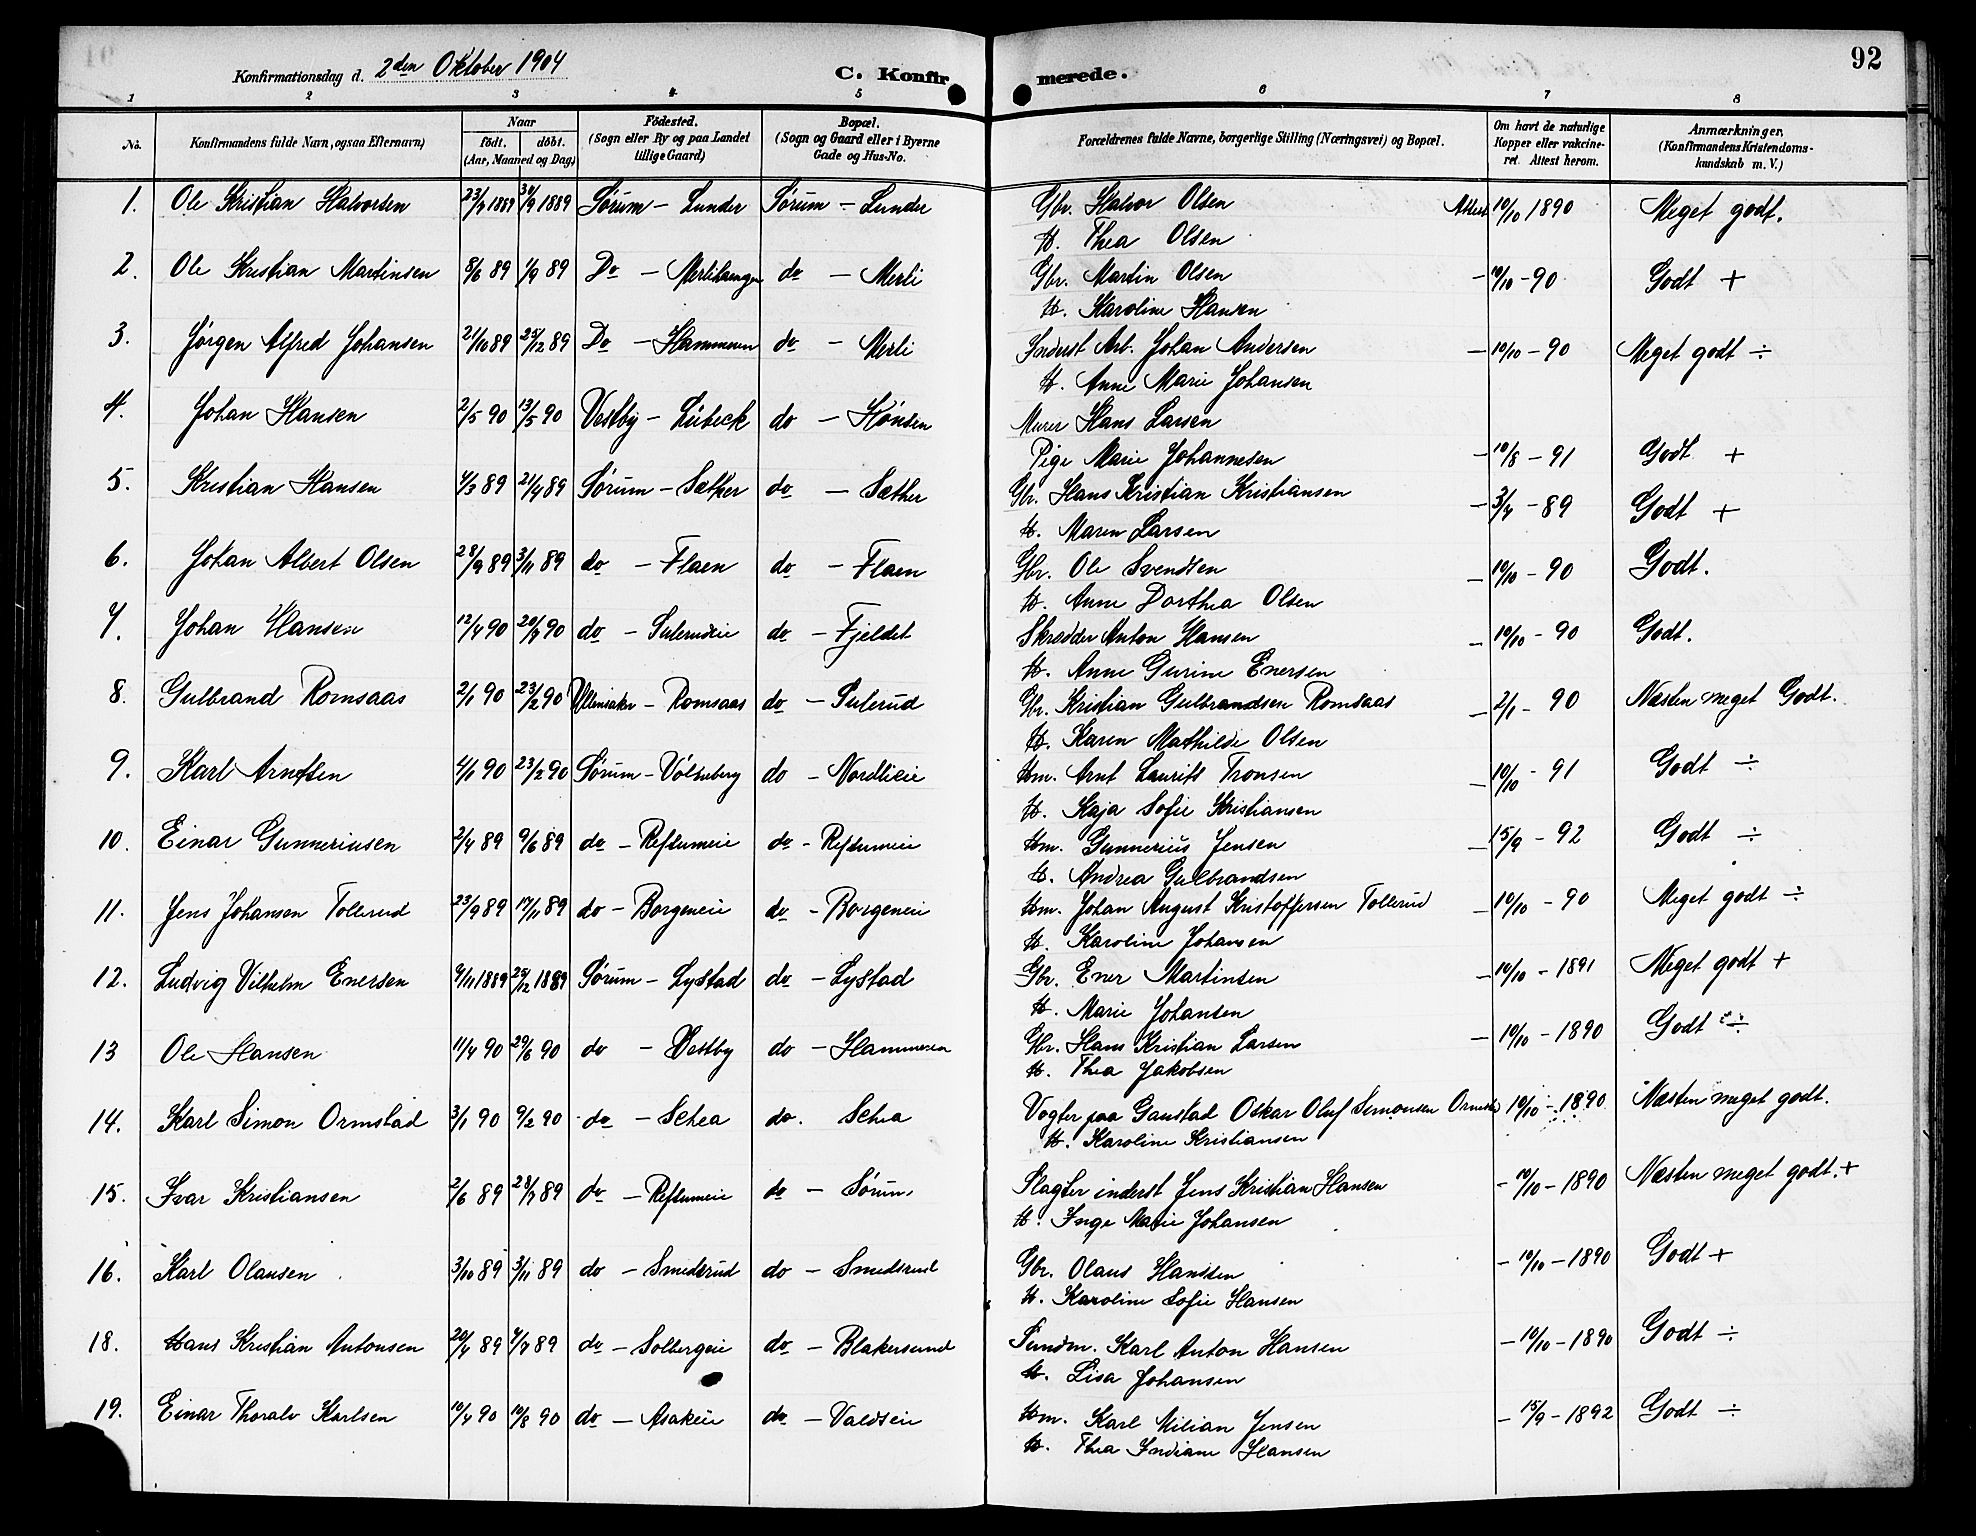 92
Konfirmationsdag d. 2den Oktober 1904
C. Konfirmerede.
1 2 3 4 5 6 7 8
No. Konfirmandens fulde Navn, ogsaa Efternavn) Naar født. døbt. (Aar, Maaned og Dag) Fødested. (Sogn eller By og paa Landet tillige Gaard) Bopæl. (Sogn og Gaard eller i Byerne Gade og Hus-No. Forældrenes fulde Navne, borgerlige Stilling (Næringsvei) og Bopæl. Om havt de naturlige Kopper eller vakcineret. Attest herom. Anmærkninger, (Konfirmandens Kristendomskundskab m. V.)
1. Ole Kristian Halvorsen 1889 1889 Sørum – Lunder Sørum – Lunder Gbr. Halvor Olsen Attest 10/10 1890 Meget godt.
H. Thea Olsen
2. Ole Kristian Martinsen 8/6 89 1/9 89 Do – Merlihaugen do – Merli Gbr. Martin Olsen – 10/10 – 90 Godt +
H. Karoline Hansen
3. Jørgen Alfred Johansen 21/10 89 25/12 89 Do – Hammeren do – Merli Inderst Arb. Johan Andersen – 10/10 – 90 Meget godt ÷
H. Anne Marie Johansen
4. Johan Hansen 2/5 90 13/5 90 Vestby – Lübeck do – Hønsen Murer Hans Larsen
Pige Marie Johannesen – 10/8 – 91 Godt +
5. Kristian Hansen 4/3 89 21/4 89 Sørum – Sæther do – Sæther Gbr. Hans Kristian Kristiansen – 3/4 – 89 Godt +
H. Maren Larsen
6. Johan Albert Olsen 28/9 89 3/11 89 do – Flaen do – Flaen Gbr. Ole Svendsen – 10/10 – 90 Godt.
H. Anne Dorthea Olsen
7. Johan Hansen 12/4 90 20/7 90 do – Sulerudeie do – Fjeldet Skrædder Anton Hansen – 10/10 – 90 Godt.
H. Anne Gurine Enersen
8. Gulbrand Romsaas 2/1 90 23/2 90 Ullensaker – Romsaas do – Sulerud Gbr. Kristian Gulbrandsen Romsaas – 2/1 – 90 Næsten meget Godt.
H. Karen Mathilde Olsen
9. Karl Arntsen 4/1 90 23/2 90 Sørum – Vølneberg do – Nordlieie Hm. Arnt Laurits Tronsen – 10/10 – 91 Godt ÷
H. Kaja Sofie Kristiansen
10. Einar Gunneriusen 2/4 89 9/6 89 do – Refsumeie do – Refsumeie Hm. Gunnerius Jensen – 15/9 – 92 Godt ÷
H. Andrea Gulbrandsen
11. Jens Johansen Tollerud 23/9 89 17/11 89 do – Borgeneie do – Borgeneie Hm. Johan August Kristoffersen Tollerud – 10/10 – 90 Meget godt ÷
H. Karoline Johansen
12. Ludvig Vilhelm Enersen 9/11 1889 1889 Sørum – Lystad do – Lystad Gbr. Ener Martinsen – 10/10 – 1891 Meget godt +
H. Marie Johansen
13 Ole Hansen 11/4 90 29/6 90 do – Vestby do – Hammeren Gbr. Hans Kristian Larsen – 10/10 – 1890 Godt ÷
H. Thea Jakobsen
14. Karl Simon Ormstad 3/1 90 9/2 90 do – Schea do. Schea Vogter paa Gaustad Oskar Oluf Simonsen Ormstad 10/10 – 1890 Næsten meget godt.
H. Karoline Kristiansen
15. Ivar Kristiansen 2/6 89 28/7 89 do – Refsumeie do – Sørum Slagter inderst Jens Kristian Hansen – 10/10 – 1890 Næsten meget godt. +
H. Inge Marie Johansen
16. Karl Olausen 3/10 89 3/11 89 do – Smedsrud do – Smedsrud Gbr. Olaus Hanssen – 10/10 – 1890 Godt +
H. Karoline Sofie Hansen
18. Hans Kristian Antonsen 20/4 89 7/7 89 do – Solbergeie do – Blakersund Sundm. Karl Anton Hansen – 10/10 – 1890 Godt ÷
H. Lisa Johansen
19. Einar Thoralv Karlsen 10/4 90 10/8 90 do – Asakeie do – Valdseie Hm. Karl Milian Jensen – 15/9 – 1892 Godt ÷
H. Thea Indiane Hansen